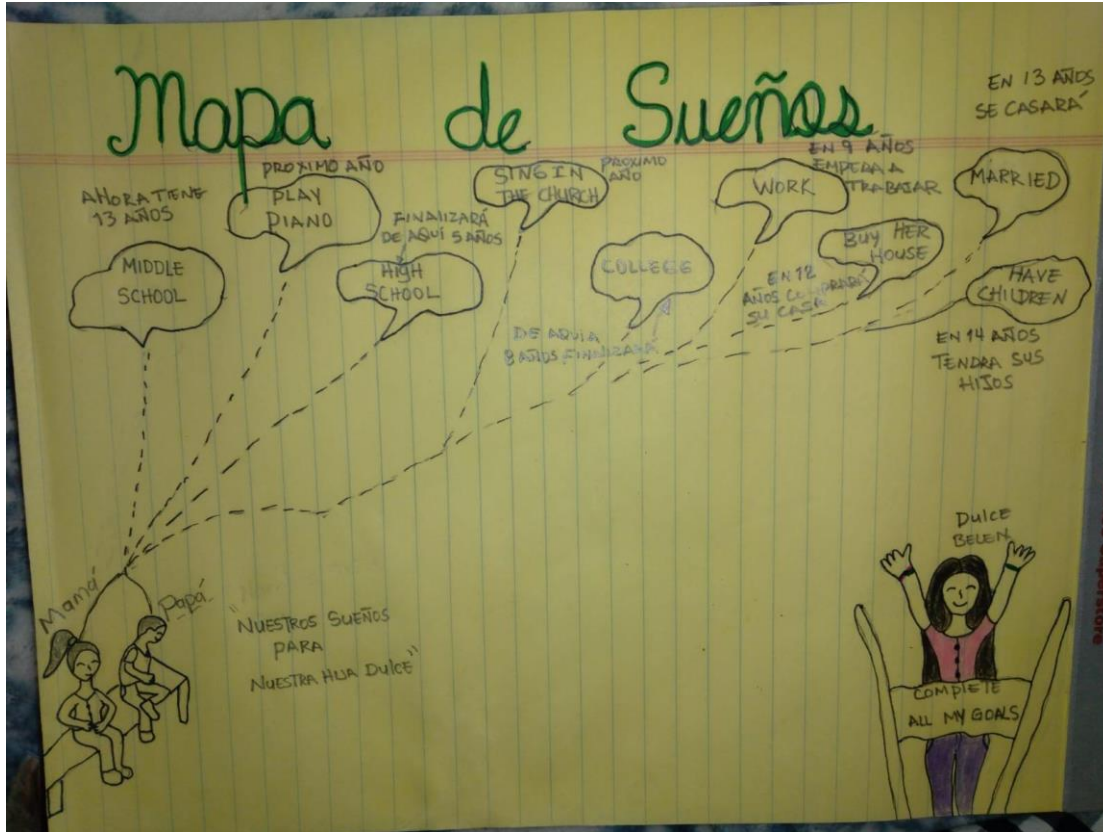 Mapa de Sueños
EN 13 AÑOS
SE CASARÁ
AHORA TIENE
13 AÑOS
MIDDLE
SCHOOL
PROXIMO AÑO
PLAY
PIANO
FINALIZARÁ
DE AQUÍ 5 AÑOS
HIGH
SCHOOL
SING IN
THE CHURCH
PROXIMO
AÑO
COLLEGE
DE AQUIA
8 AÑOS FINALIZARÁ
WORK
EN 9 AÑOS
A
TRABAJAR
BUY HER
HOUSE
EN 12
AÑOS COMPRARÁ
SU CASA
MARRIED
HAVE
CHILDREN
EN 14 AÑOS
TENDRA SUS
HIJOS
Mamá
Papá
"NUESTROS SUEÑOS
PARA
NUESTRA HIJA DULCE"
DULCE
BELEN
COMPLETE
ALL MY GOALS